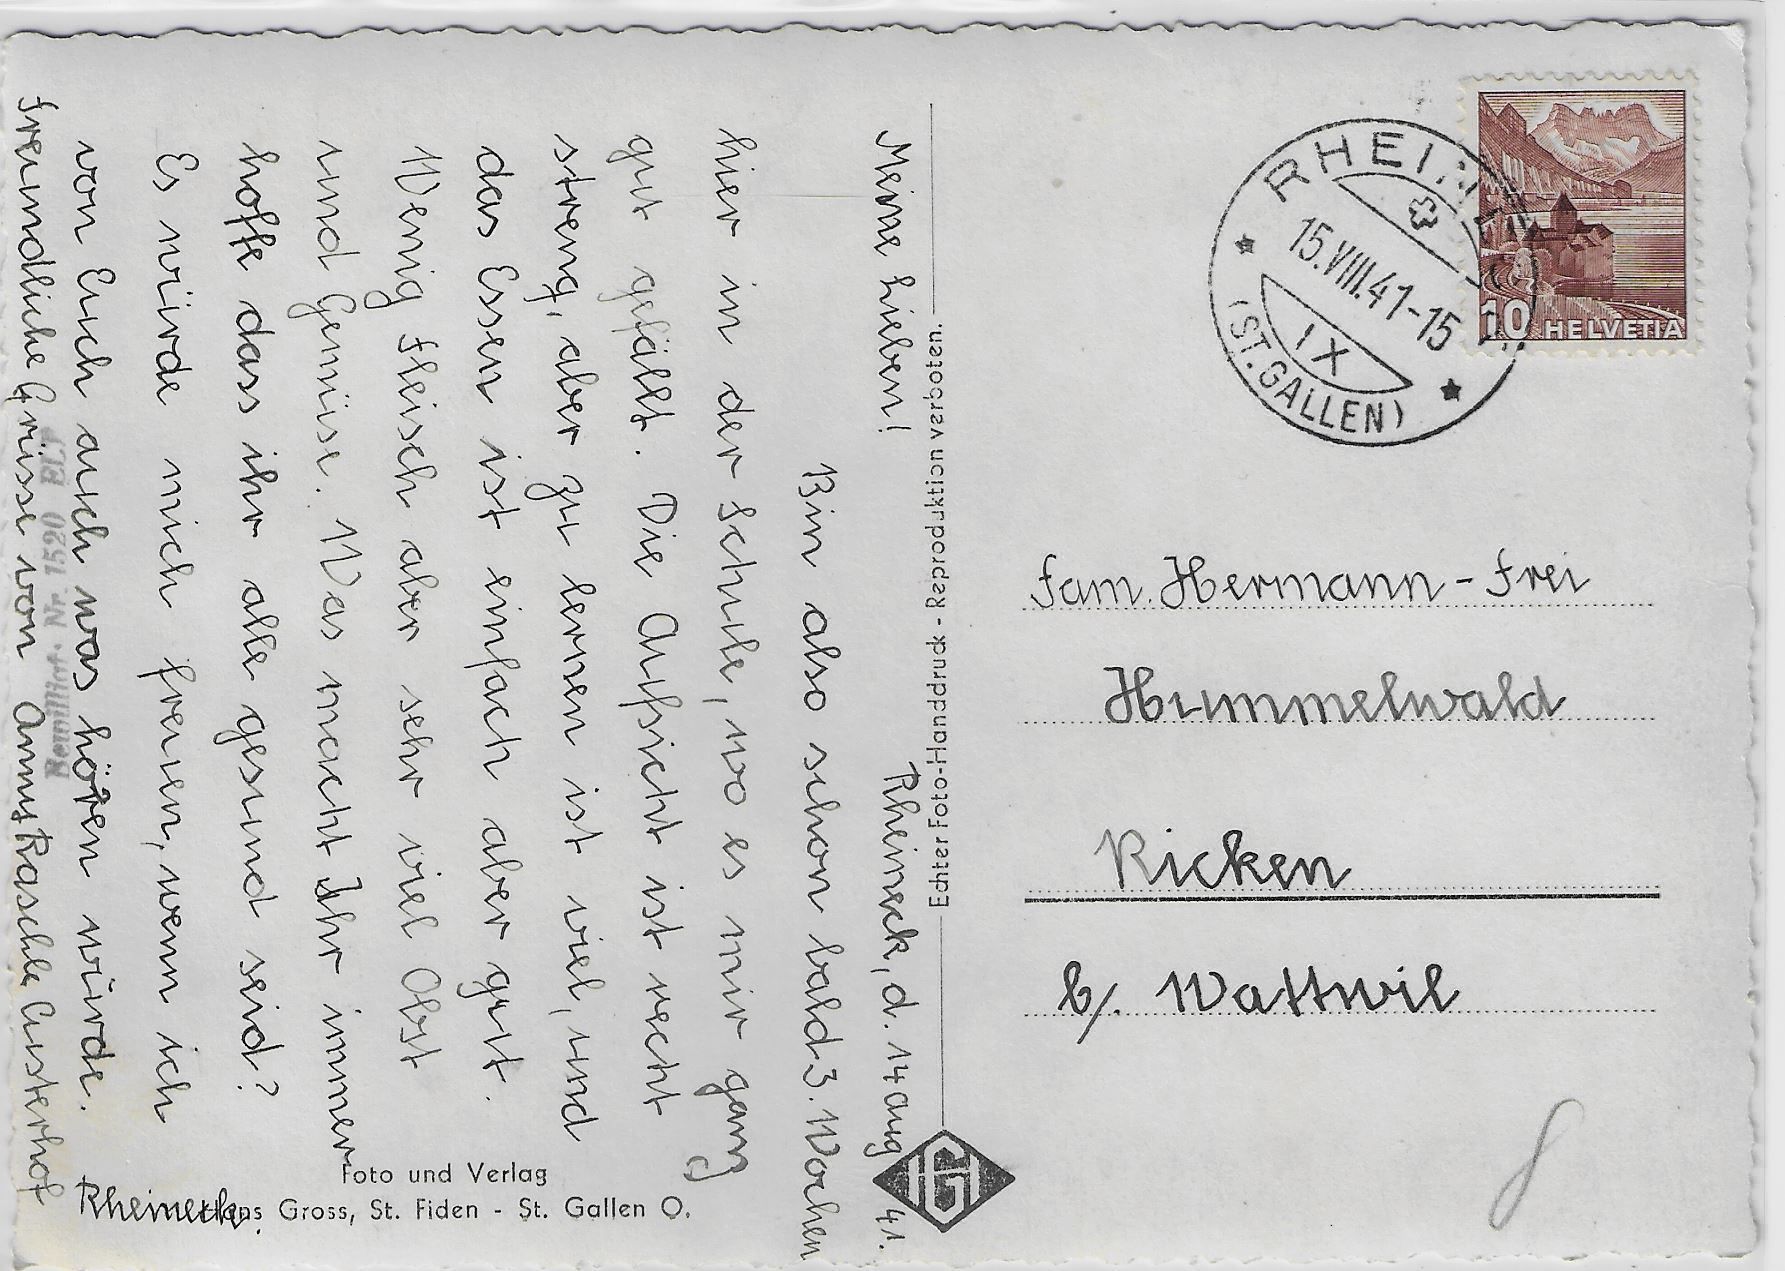 Rheineck, d. 14 Aug 41.
Meine Lieben!
Bin also schon bald 3. Wochen
hier in der Schule, wo es mir ganz
gut gefällt. Die Aufsicht ist recht
streng, aber zu lernen ist viel, und
das Essen ist einfach aber gut.
Wenig Fleisch aber sehr viel Obst
und Gemüse. Was macht Ihr immer
hoffe dass ihr alle gesund seid?
Es würde mich freuen, wenn ich
von Euch auch was hören würde.
Freundliche Grüsse von Anny Raschle Custerhof
Rheineck.
Foto und Verlag
Hans Gross, St. Fiden - St. Gallen O.
Bewilligt. Nr. 1520
Echter Foto-Handdruck - Reproduktion verboten.
HG
RHEINECK
15.VIII.41-15
IX
(ST.GALLEN)
10 HELVETIA
Fam. Hermann - Frei
Hummelwald
Ricken
b/. Wattwil